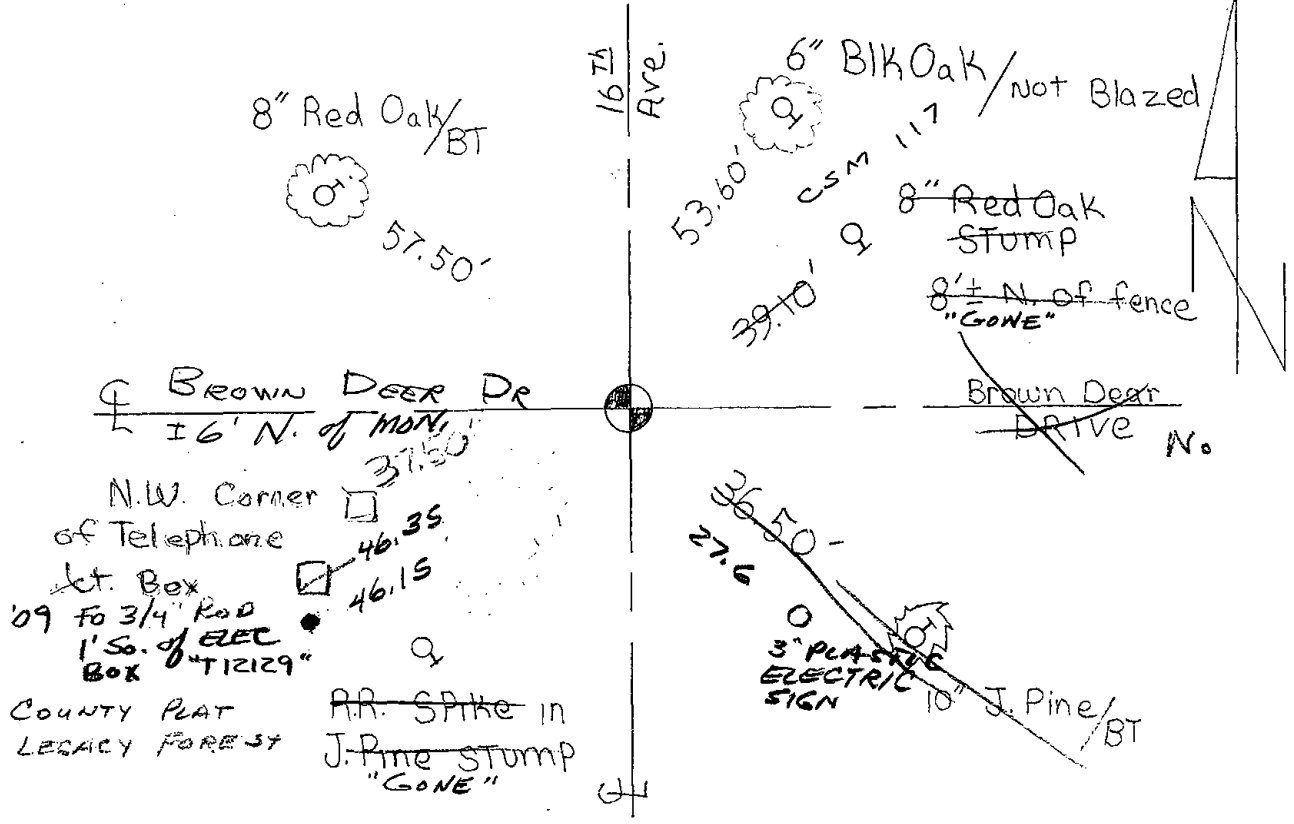 16 Th
Ave.
8" Red Oak/BT
57.50'
6" Blk Oak/Not Blazed
53.60'
CSM 117
8" Red Oak
STump
8'± N. of fence
"GONE"
39.10'
℄ BROWN DEER DR
±6' N. of MON.
Brown Dear
DRive
No
37.50'
N.W. Corner
of Telephone
Box
46.35
46.15
'09 FD 3/4" ROD
1' So. of ELEC
BOX "T12129"
COUNTY PLAT
LEGACY FOREST
R.R. SPike in
J. Pine STump
"GONE"
36.50
27.6
3" PLASTIC
ELECTRIC
SIGN
10" J. Pine/BT